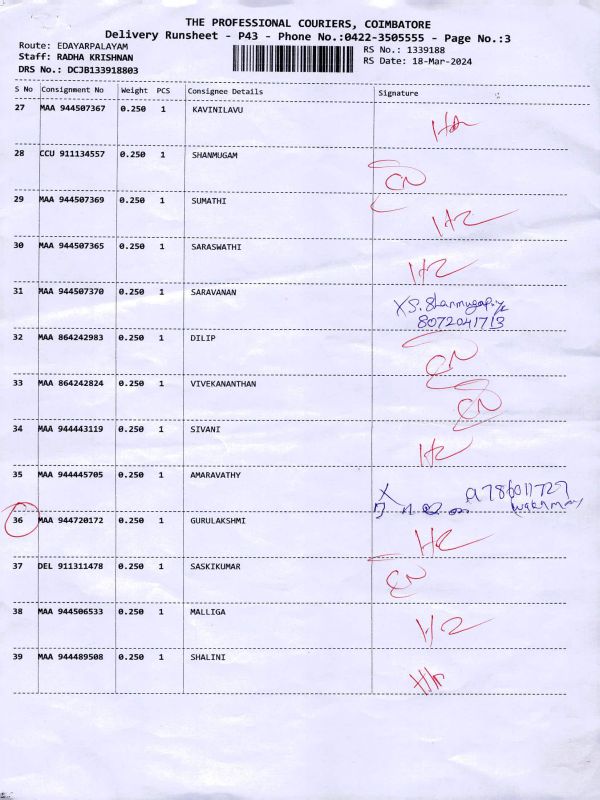 THE PROFESSIONAL COURIERS, COIMBATORE
Delivery Runsheet - P43 - Phone No.:0422-3505555 - Page No.:3
Route: EDAYARPALAYAM
RS No.: 1339188
Staff: RADHA KRISHNAN
RS Date: 18-Mar-2024
DRS No.: DCJB133918803
S No Consignment No Weight PCS Consignee Details Signature
27 MAA 944507367 0.250 1 KAVINILAVU
28 CCU 911134557 0.250 1 SHANMUGAM
CN
29 MAA 944507369 0.250 1 SUMATHI
HZ
30 MAA 944507365 0.250 1 SARASWATHI
HZ
31 MAA 944507370 0.250 1 SARAVANAN
8072041713
32 MAA 864242983 0.250 1 DILIP
CN
33 MAA 864242824 0.250 1 VIVEKANANTHAN
CN
34 MAA 944443119 0.250 1 SIVANI
HZ
35 MAA 944445705 0.250 1 AMARAVATHY
36 MAA 944720172 0.250 1 GURULAKSHMI
37 DEL 911311478 0.250 1 SASKIKUMAR
CN
38 MAA 944506533 0.250 1 MALLIGA
HZ
39 MAA 944489508 0.250 1 SHALINI